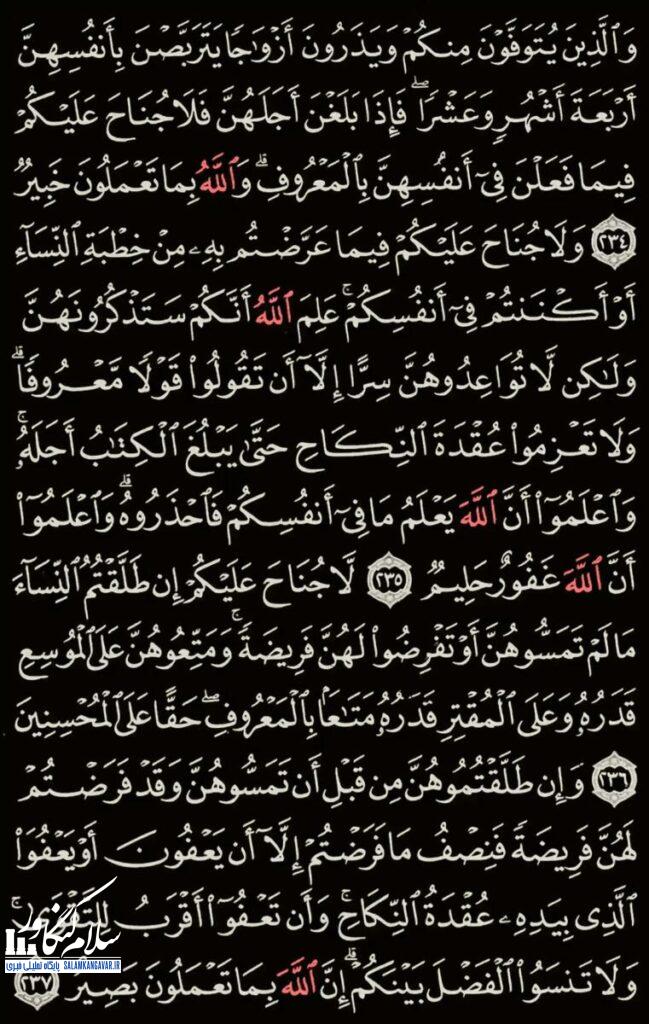 وَٱلَّذِينَ يُتَوَفَّوْنَ مِنكُمْ وَيَذَرُونَ أَزْوَٰجًا يَتَرَبَّصْنَ بِأَنفُسِهِنَّ
أَرْبَعَةَ أَشْهُرٍ وَعَشْرًا ۖ فَإِذَا بَلَغْنَ أَجَلَهُنَّ فَلَا جُنَاحَ عَلَيْكُمْ
فِيمَا فَعَلْنَ فِىٓ أَنفُسِهِنَّ بِٱلْمَعْرُوفِ ۗ وَٱللَّهُ بِمَا تَعْمَلُونَ خَبِيرٌ
٢٣٤ وَلَا جُنَاحَ عَلَيْكُمْ فِيمَا عَرَّضْتُم بِهِۦ مِنْ خِطْبَةِ ٱلنِّسَآءِ
أَوْ أَكْنَنتُمْ فِىٓ أَنفُسِكُمْ ۚ عَلِمَ ٱللَّهُ أَنَّكُمْ سَتَذْكُرُونَهُنَّ
وَلَٰكِن لَّا تُوَاعِدُوهُنَّ سِرًّا إِلَّآ أَن تَقُولُوا۟ قَوْلًا مَّعْرُوفًا ۚ
وَلَا تَعْزِمُوا۟ عُقْدَةَ ٱلنِّكَاحِ حَتَّىٰ يَبْلُغَ ٱلْكِتَٰبُ أَجَلَهُۥ ۚ
وَٱعْلَمُوٓا۟ أَنَّ ٱللَّهَ يَعْلَمُ مَا فِىٓ أَنفُسِكُمْ فَٱحْذَرُوهُ ۚ وَٱعْلَمُوٓا۟
أَنَّ ٱللَّهَ غَفُورٌ حَلِيمٌ ٢٣٥ لَّا جُنَاحَ عَلَيْكُمْ إِن طَلَّقْتُمُ ٱلنِّسَآءَ
مَا لَمْ تَمَسُّوهُنَّ أَوْ تَفْرِضُوا۟ لَهُنَّ فَرِيضَةً ۚ وَمَتِّعُوهُنَّ عَلَى ٱلْمُوسِعِ
قَدَرُهُۥ وَعَلَى ٱلْمُقْتِرِ قَدَرُهُۥ مَتَٰعًۢا بِٱلْمَعْرُوفِ ۖ حَقًّا عَلَى ٱلْمُحْسِنِينَ
٢٣٦ وَإِن طَلَّقْتُمُوهُنَّ مِن قَبْلِ أَن تَمَسُّوهُنَّ وَقَدْ فَرَضْتُمْ
لَهُنَّ فَرِيضَةً فَنِصْفُ مَا فَرَضْتُمْ إِلَّآ أَن يَعْفُونَ أَوْ يَعْفُوَا۟
ٱلَّذِى بِيَدِهِۦ عُقْدَةُ ٱلنِّكَاحِ ۚ وَأَن تَعْفُوٓا۟ أَقْرَبُ لِلتَّقْوَىٰ ۚ
وَلَا تَنسَوُا۟ ٱلْفَضْلَ بَيْنَكُمْ ۚ إِنَّ ٱللَّهَ بِمَا تَعْمَلُونَ بَصِيرٌ ٢٣٧
سلام کنگاور
پایگاه تحلیلی خبری SALAMKANGAVAR.IR